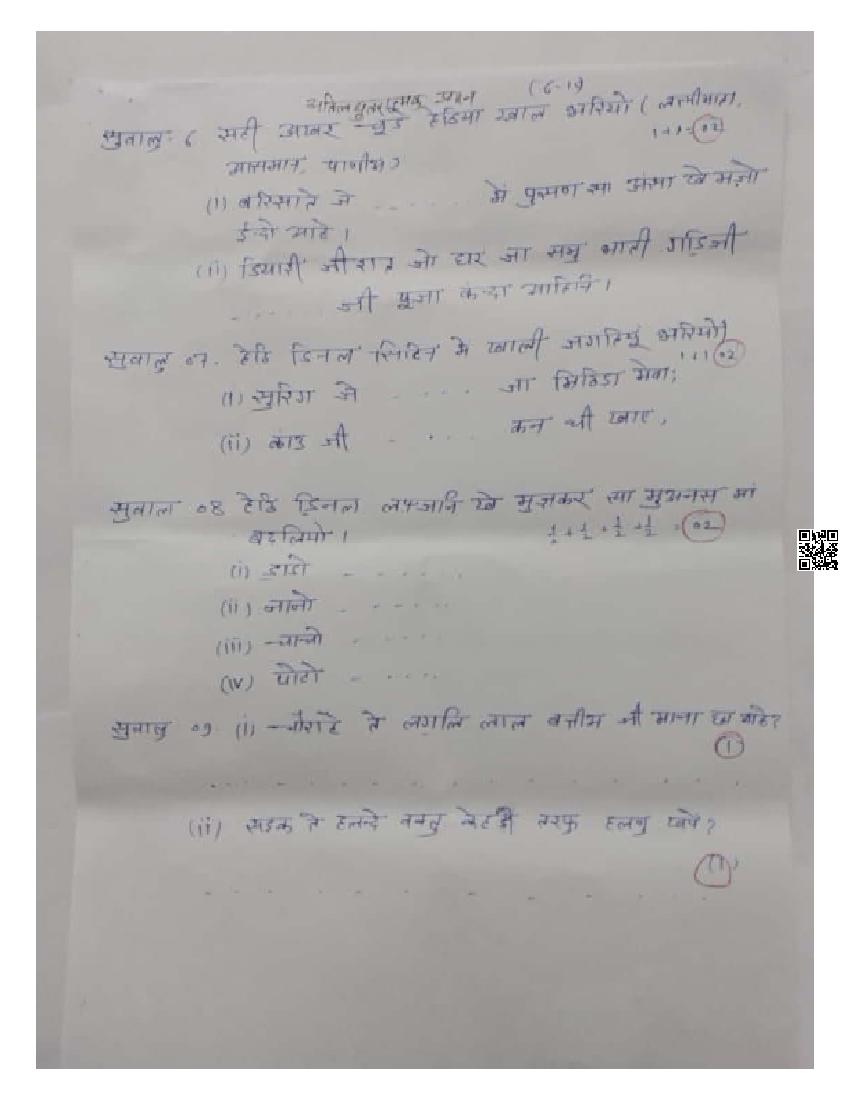 अतिलघुतरात्मक प्रश्न (6-11)
सुवालु- 6 सही आखर चुंडे हेठिया खाल भरियो ( लक्ष्मीमाता,
1+1=(02)
आसमान, पाणीअ)
(i) बरिसाते जे ....... में घुमण सा असां खे मज़ो
ईन्दो आहे ।
(ii) डियारी जी रात जो घर जा सभु भाती गडिजी
....... जी पूजा कन्दा आहिनि ।
सुवालु 07. हेठि डिनल सिटिन में खाली जगहियूं भरियो)
1+1 (02)
(i) सुरिग जे .... जा मिठिडा मेवा;
(ii) काउ जी - ... कन थी खाए,
सुवाल 08 हेठि डिनल लफ़्ज़नि खे मुज़कर सा मुअनस मां
बदलियो ।
½ + ½ + ½ + ½ = (02)
(i) डाडो - ......
(ii) नानो - .....
(iii) चाचो - .....
(iv) घोटो - .....
सुवालु 09. (i) चौराहे ते लग़लि लाल बत्तीअ जी माना छा आहे?
(1)
(ii) सड़क ते हलन्दे वक्तु केहड़ी तरफु हलणु घुरिजे?
(1)